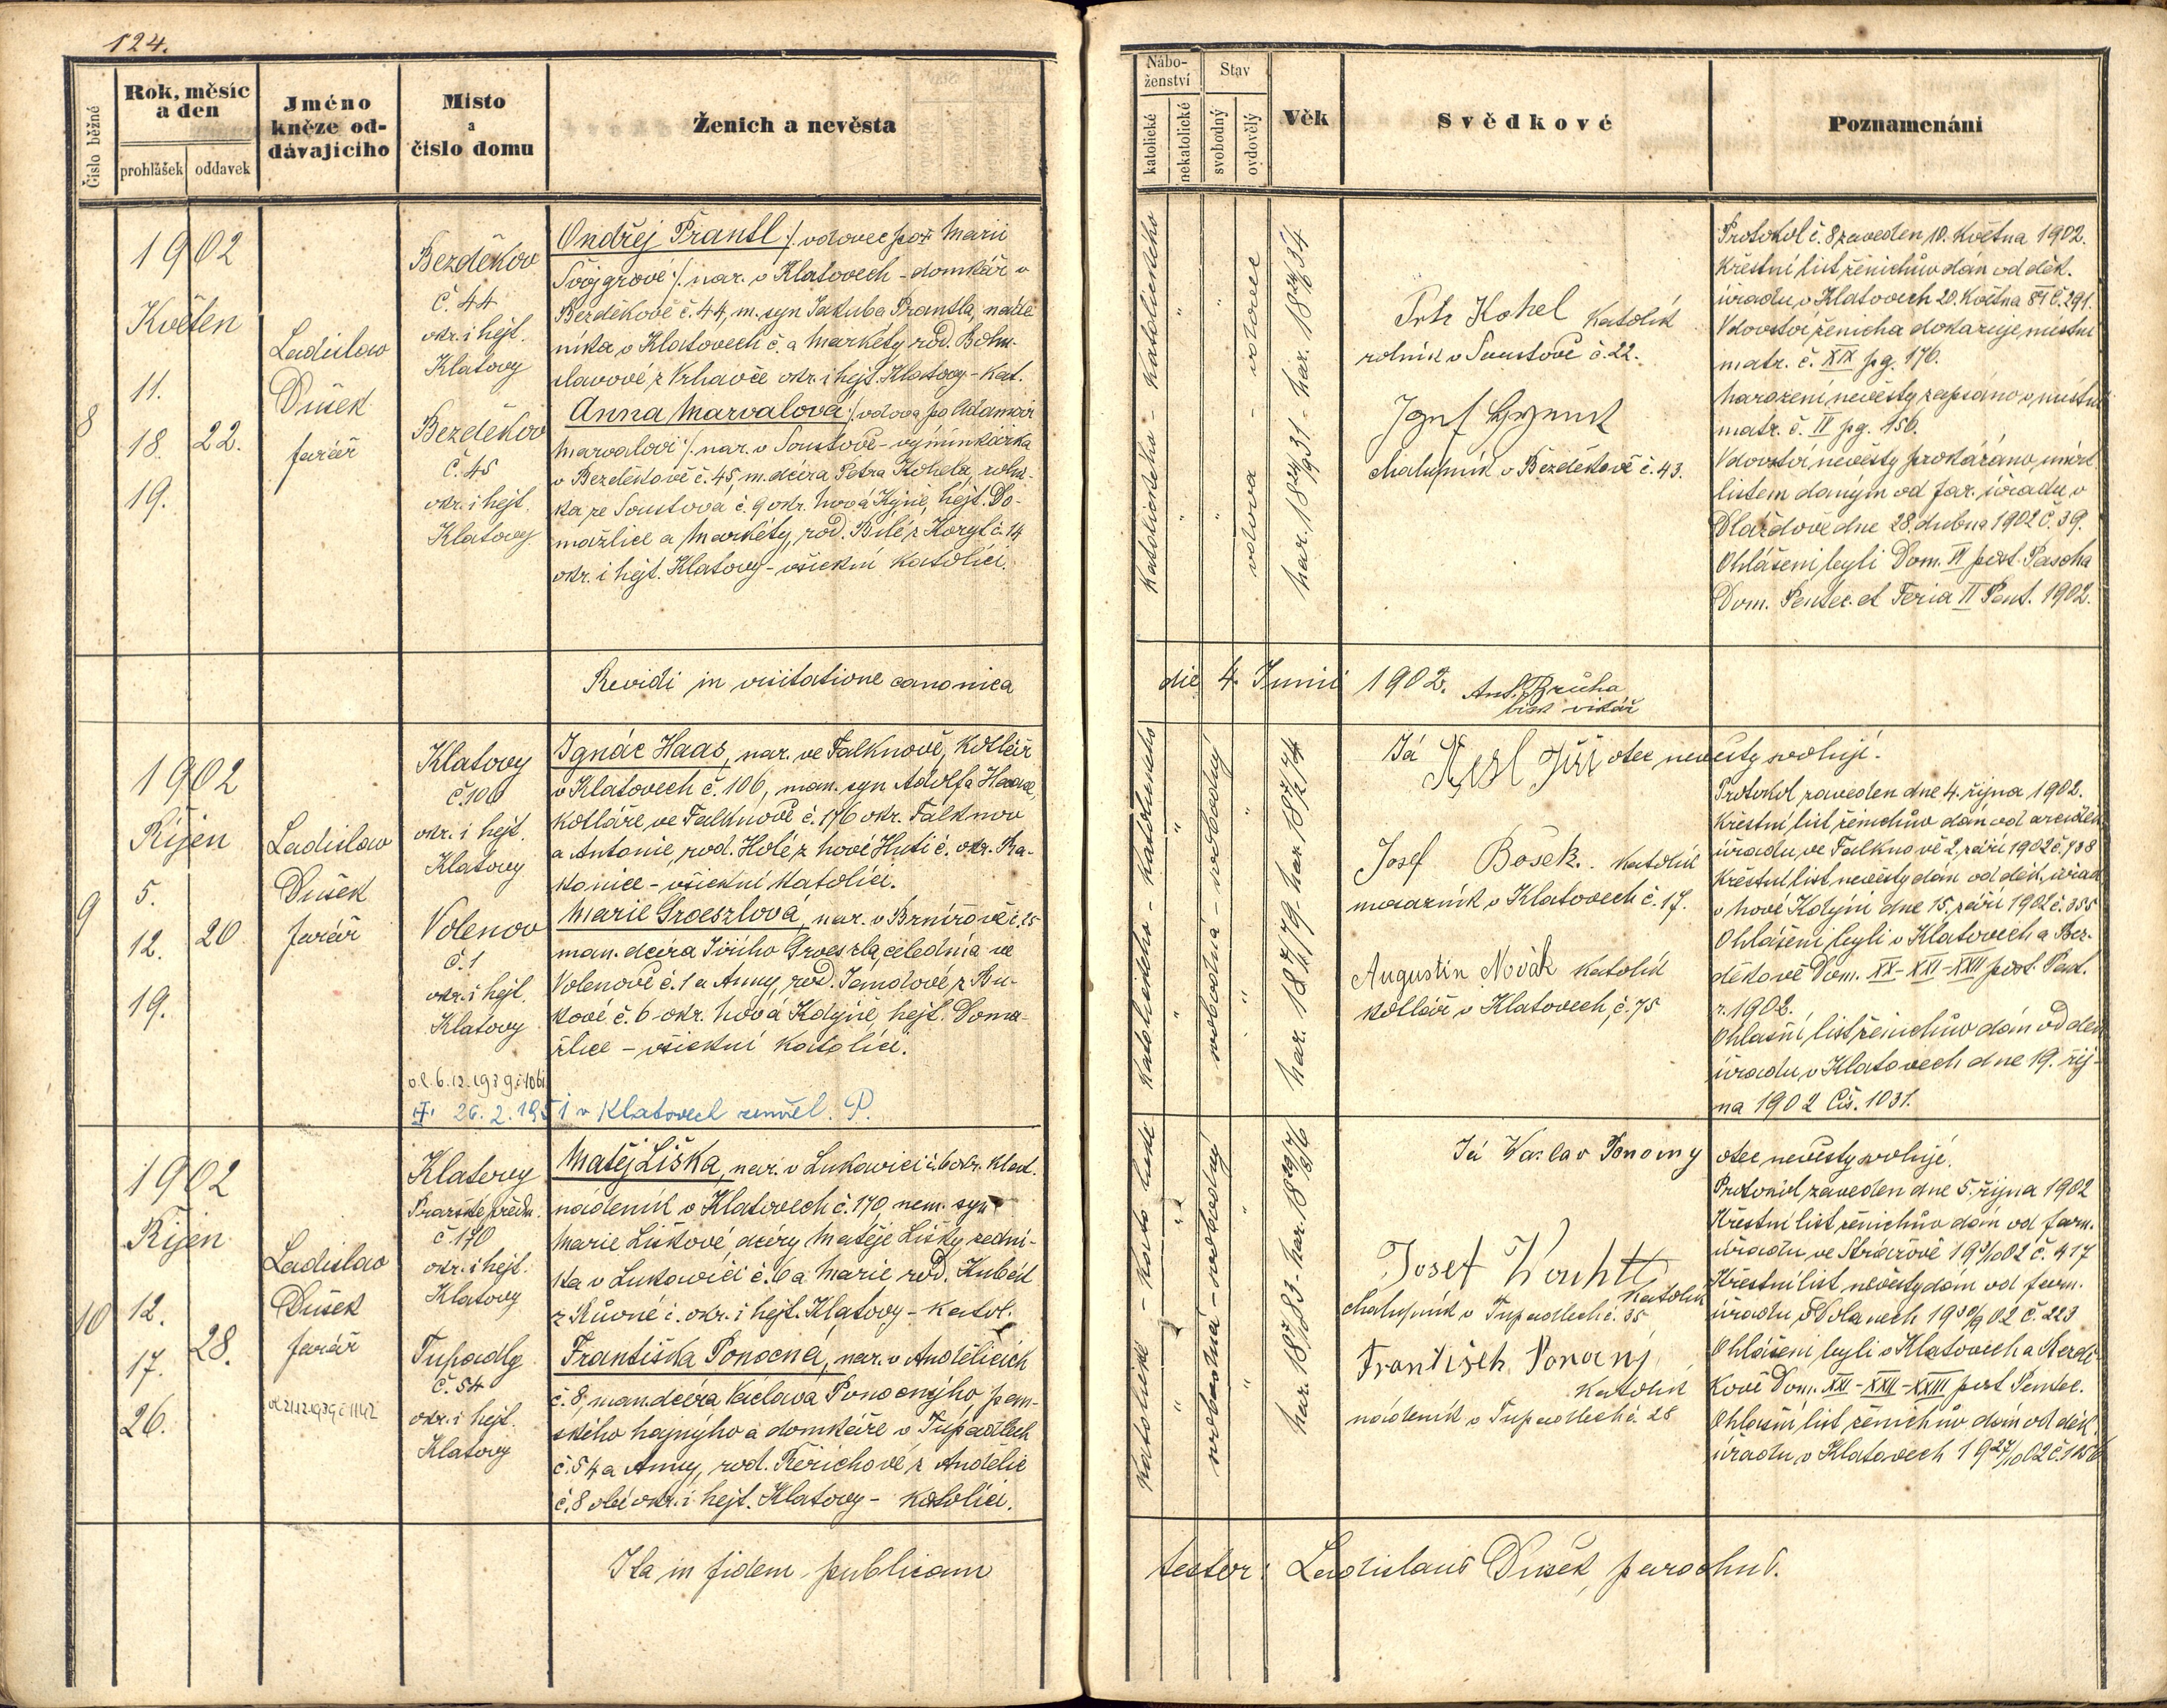 124.
Číslo běžné
Rok, měsíc
a den
prohlášek
oddavek
Jméno
kněze od-
dávajícího
Místo
a
číslo domu
Ženich a nevěsta
Nábo-
ženství
katolické
nekatolické
Stav
svobodný
ovdovělý
Věk
Svědkové
Poznamenání
8
1902
Květen
11.
18.
19.
22.
Ladislav
Dušek
farář
Bezděkov
č. 44
okr. i hejt.
Klatovy
Bezděkov
č. 45
okr. i hejt.
Klatovy
Ondřej Prantl /: vdovec po † Marii
Švojgrové :/ nar. v Klatovech - domkář v
Bezděkově č. 44, m. syn Jakuba Prantla, náde-
níka v Klatovech č. a Markéty rod. Bohu-
slavové z Vrhavče okr. i hejt. Klatovy - kat.
Anna Marvalová /: vdova po Adamovi
Marvalovi :/ nar. v Soustově - výminkářka
v Bezděkově č. 45, m. dcera Petra Kohela, rolní-
ka ze Soustova č. 9 okr. Nová Kdyně, hejt. Do-
mažlice a Markéty, rod. Bílé z Koryt č. 14
okr. i hejt. Klatovy - všichni katolíci.
katolického - katolického
" "
" "
vdova - vdovec
nar. 18 24/9 31 - nar. 18 34
Petr Kohel katolík
rolník v Soustově č. 22.
Josef
chalupník v Bezděkově č. 43.
Protokol č. 8 zaveden 10. Května 1902.
Křestní list ženichův dán od děk.
úřadu v Klatovech 20. Května 84 č. 291.
Vdovství ženicha dokazuje místní
matr. č. XIX pg. 176.
Narození nevěsty zapsáno v místní
matr. č. II pg. 156.
Vdovství nevěsty prokázáno úmrt.
listem daným od far. úřadu v
Dlažďově dne 28. dubna 1902 č. 39.
Ohlášeni byli Dom. VI post. Pascha
Dom. Pentec. et Feria II Pent. 1902.
Revidi in visitatione canonica
die 4. Junii 1902. Ant. Brůha
bisk. vikář
9
1902
Říjen
5.
12.
19.
20
Ladislav
Dušek
farář
Klatovy
č. 106
okr. i hejt.
Klatovy
Volenov
č. 1
okr. i hejt.
Klatovy
Ignác Haas, nar. ve Falknově, kotlář
v Klatovech č. 106, man. syn Adolfa Haase,
kotláře ve Falknově č. 176 okr. Falknov
a Antonie, rod. Holé z Nové Huti č. okr. Ra-
konice - všichni katolíci.
Marie Groeszlová, nar. v Brnířově č. 25
man. dcera Jiřího Groeszla, čeledína ve
Volenově č. 1 a Anny, rod. Jandové z Bu-
kové č. 6 okr. Nová Kdyně, hejt. Doma-
žlice - všichni katolíci.
o.l. 6.12.1939 č. 1061
† 26.2.1951 v Klatovech zemřel. P.
katolického - katolického
" "
svobodná - svobodný
" "
Já Jiří otec nevěsty svoluji.
Josef Bošek. katolík
mazarník v Klatovech č. 17.
Augustin Novák katolík
kotlář v Klatovech, č. 75
Protokol zaveden dne 4. října 1902.
Křestní list ženichův dán od arciděk.
úřadu ve Falknově 2. září 1902 č. 938
Křestní list nevěsty dán od děk. úřad.
v Nové Kdyni dne 15. září 1902 č. 355
Ohlášeni byli v Klatovech a Bez-
děkově Dom. XX-XXI-XXII post. Pent.
r. 1902.
Ohlašní list ženichův dán od děk.
úřadu v Klatovech dne 19. říj-
na 1902 Čís. 1031.
10
1902
Říjen
12.
17.
26.
28.
Ladislav
Dušek
farář
o.l. 21.12.1939 č. 1142
Klatovy
Pražské předm.
č. 170
okr. i hejt.
Klatovy
Tupadly
č. 54
okr. i hejt.
Klatovy
Matěj Liška, nar. v Lukavici č. 6 okr. Klat.
nádeník v Klatovech č. 170, nem. syn
Marie Liškové, dcery Matěje Lišky, sední-
ka v Lukavici č. 6 a Marie rod. Kubeš
z Růvné č. okr. i hejt. Klatovy - katol.
Františka Ponocná, nar. v Andělicích
č. 8, man. dcera Václava Ponocnýho, pan-
ského hajnýho a domkáře v Tupadlech
č. 54 a Anny, rod. Řerichové z Andělic
č. 8 obé okr. i hejt. Klatovy - katolíci.
svobodná - svobodný
" "
Já Vaclav Ponocny otec nevěsty svoluji.
Josef katolík
chalupník v Tupadlech č. 35
František Ponocný
katolík
nádeník v Tupadlech č. 28
Protokol zaveden dne 5. října 1902
Křestní list ženichův dán od farn.
úřadu ve Strážově 19 3/10 02 č. 417
Křestní list nevěsty dán od farn.
úřadu v Dolanech 19 30/9 02 č. 223
Ohlášeni byli v Klatovech a Bezdě-
kově Dom. XXI-XXII-XXIII post Pentec.
Ohlašní list ženichův dán od děk.
úřadu v Klatovech 19 27/10 02
Ita in fidem publicam
testor: Ladislaus Dušek, parochus.